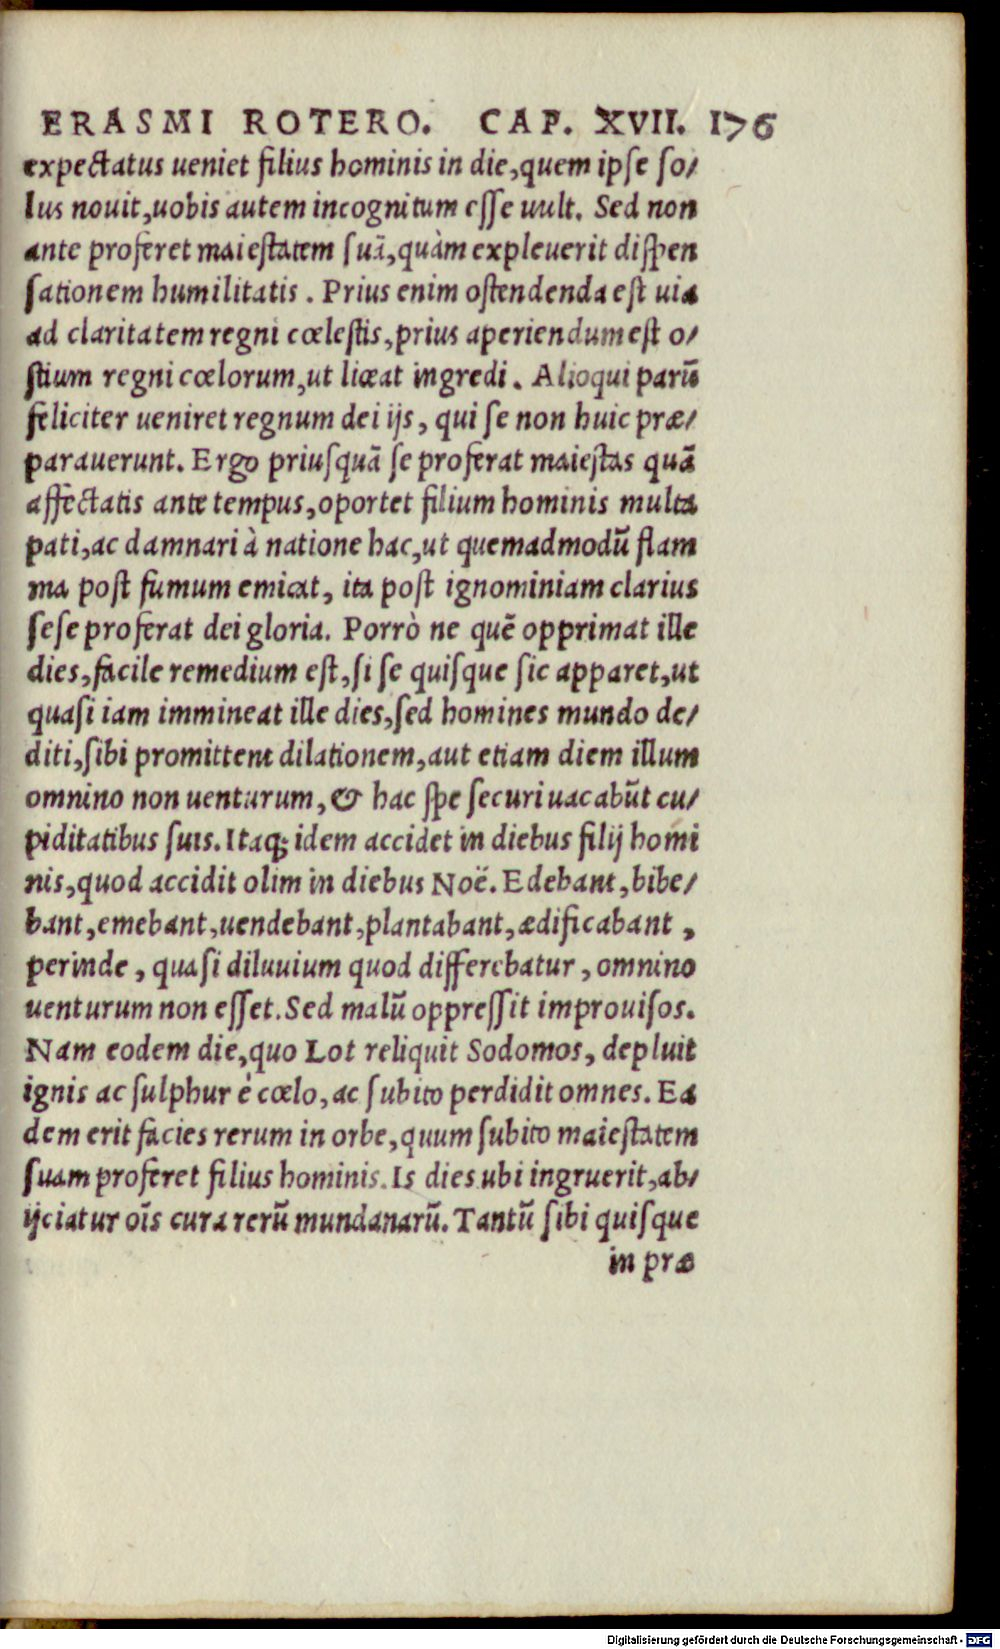 ERASMI ROTERO. CAP. XVII. 176
expectatus ueniet filius hominis in die, quem ipse so/
lus nouit, uobis autem incognitum esse uult. Sed non
ante proferet maiestatem suā, quàm expleuerit dispen
sationem humilitatis. Prius enim ostendenda est uia
ad claritatem regni cœlestis, prius aperiendum est o/
stium regni cœlorum, ut liceat ingredi. Alioqui parū
feliciter ueniret regnum dei ijs, qui se non huic præ/
parauerunt. Ergo priusquā se proferat maiestas quā
affectatis ante tempus, oportet filium hominis multa
pati, ac damnari à natione hac, ut quemadmodū flam
ma post fumum emicat, ita post ignominiam clarius
sese proferat dei gloria. Porrò ne quē opprimat ille
dies, facile remedium est, si se quisque sic apparet, ut
quasi iam immineat ille dies, sed homines mundo de/
diti, sibi promittent dilationem, aut etiam diem illum
omnino non uenturum, & hac spe securi uacabūt cu/
piditatibus suis. Itaq; idem accidet in diebus filij homi
nis, quod accidit olim in diebus Noë. Edebant, bibe/
bant, emebant, uendebant, plantabant, ædificabant,
perinde, quasi diluuium quod differebatur, omnino
uenturum non esset. Sed malū oppressit improuisos.
Nam eodem die, quo Lot reliquit Sodomos, depluit
ignis ac sulphur è cœlo, ac subito perdidit omnes. Ea
dem erit facies rerum in orbe, quum subito maiestatem
suam proferet filius hominis. Is dies ubi ingruerit, ab/
ijciatur oīs cura rerū mundanarū. Tantū sibi quisque
in præ
Digitalisierung gefördert durch die Deutsche Forschungsgemeinschaft - DFG